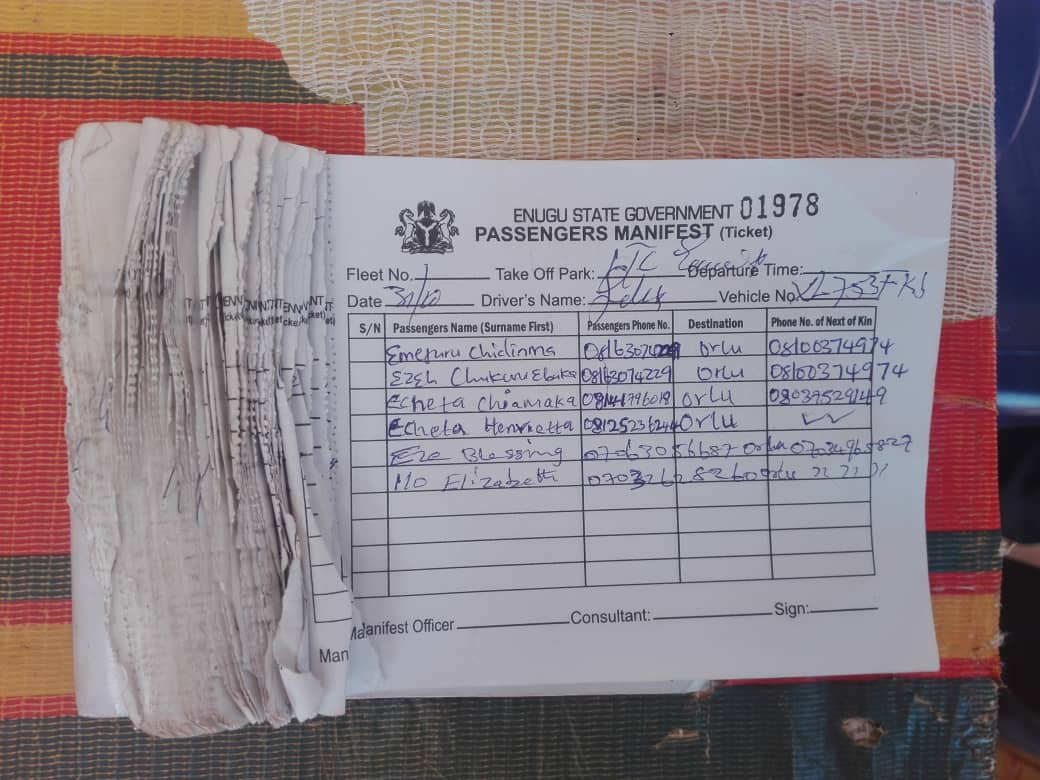 ENUGU STATE GOVERNMENT 01978
PASSENGERS MANIFEST (Ticket)
Fleet No. 1 Take Off Park: Departure Time:
Date 31/10 Driver's Name: Vehicle No.
S/N Passengers Name (Surname First) Passengers Phone No. Destination Phone No. of Next of Kin
Emeruru Chidinma Orlu 08100374974
Ezeh Chukwu Ebuka 08163074229 Orlu 08100374974
Echeta Chiamaka 08141796018 Orlu 08039529149
Echeta Henrietta 08125236244 Orlu
Eze Blessing 07063056687 Orlu
Elizabeth
Manifest Officer Consultant: Sign:
Man